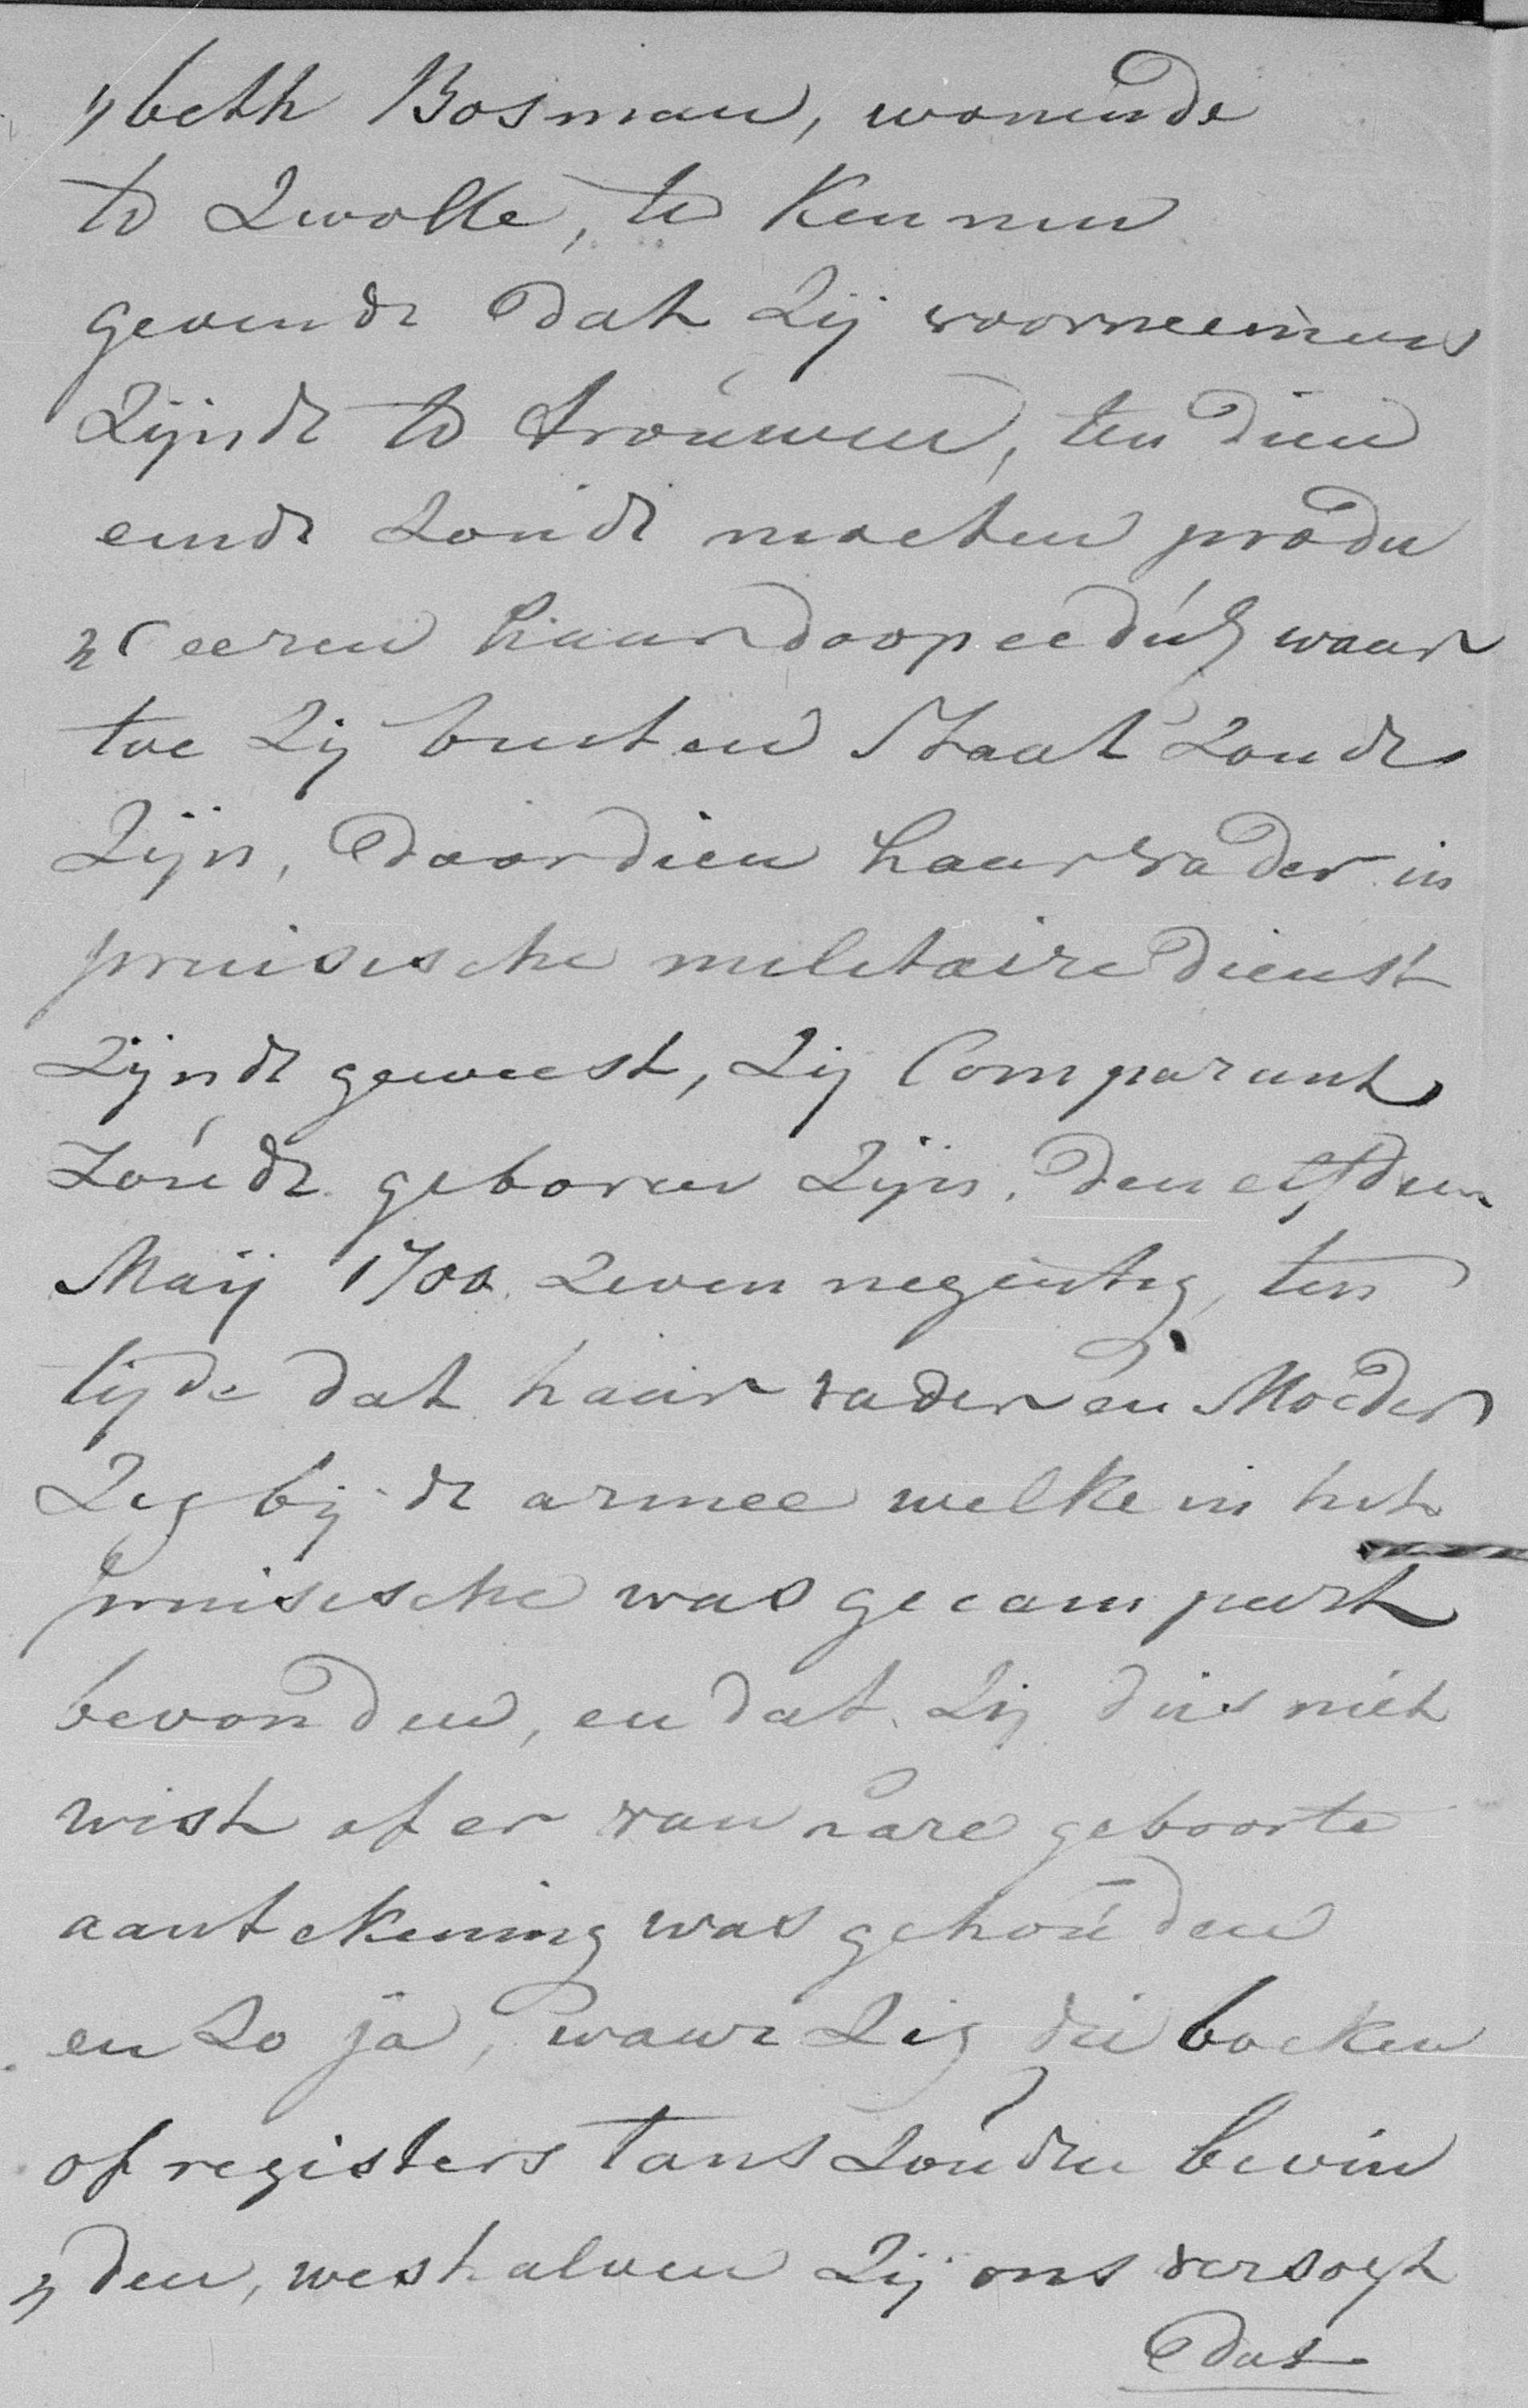 "beth Bosman, wonende
te Zwolle, te kennen
gevende dat Zij voorneemens
Zijnde te trouwen, ten dien
einde Zoude moeten produ
"ceeren haar doopceedul, waar
toe Zij buiten Staat Zoude
Zijn, doordien haar vader in
pruisische militaire dienst
Zijnde geweest, Zij Comparant
Zoude geboren Zijn, den elfden
Maij 1700 Zeven negentig, ten
tijde dat haar vader en Moeder
Zig bij de armee welke in het
pruisische was gecampeert
bevonden, en dat Zij dus niet
wist of er van hare geboorte
aantekening was gehouden
en Zo ja, waar Zig die boeken
of registers tans Zouden bevin
"den, weshalven Zij ons versogt
dat